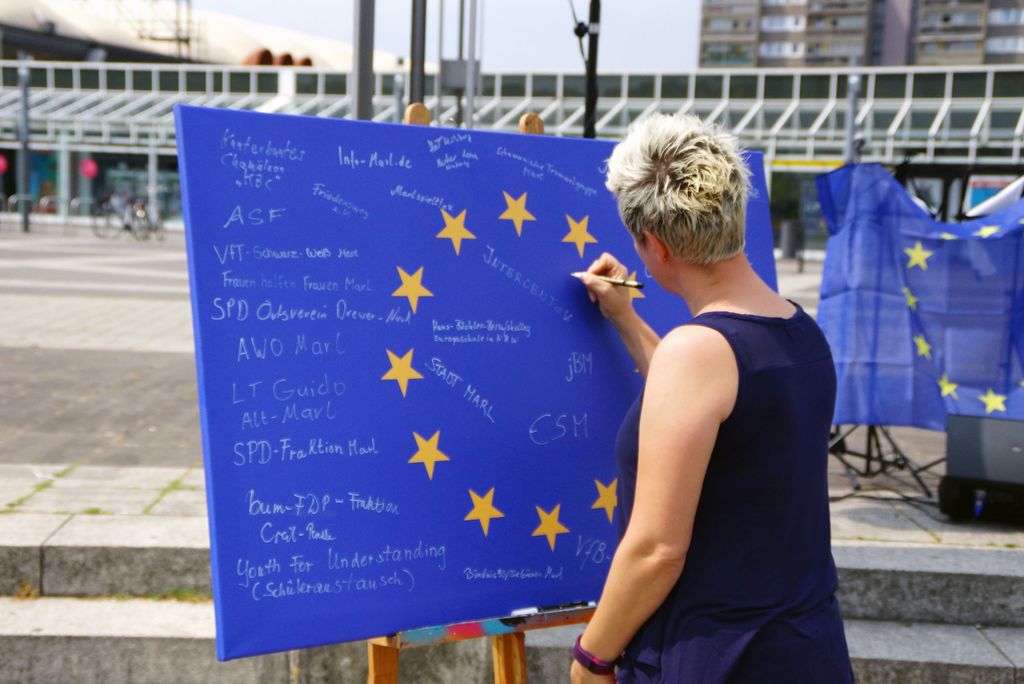 Kunterbuntes
Chamäleon
"KBC"
Info-Marl.de
Marl
Friedensweg
e.V.
ASF
VFT-Schwarz-Weiß Marl
Frauen helfen Frauen Marl
SPD Ortsverein Drewer-Nord
INTERCENT
AWO Marl
Hans-Böckler-Berufskolleg
Europaschule in NRW
jBM
LT Guido
Alt-Marl
STADT MARL
ESM
SPD-Fraktion Marl
bum-FDP-Fraktion
Creil-
VfB-
Youth For Understanding
(Schüleraustausch)
Bündnis 90/Die Grünen Marl